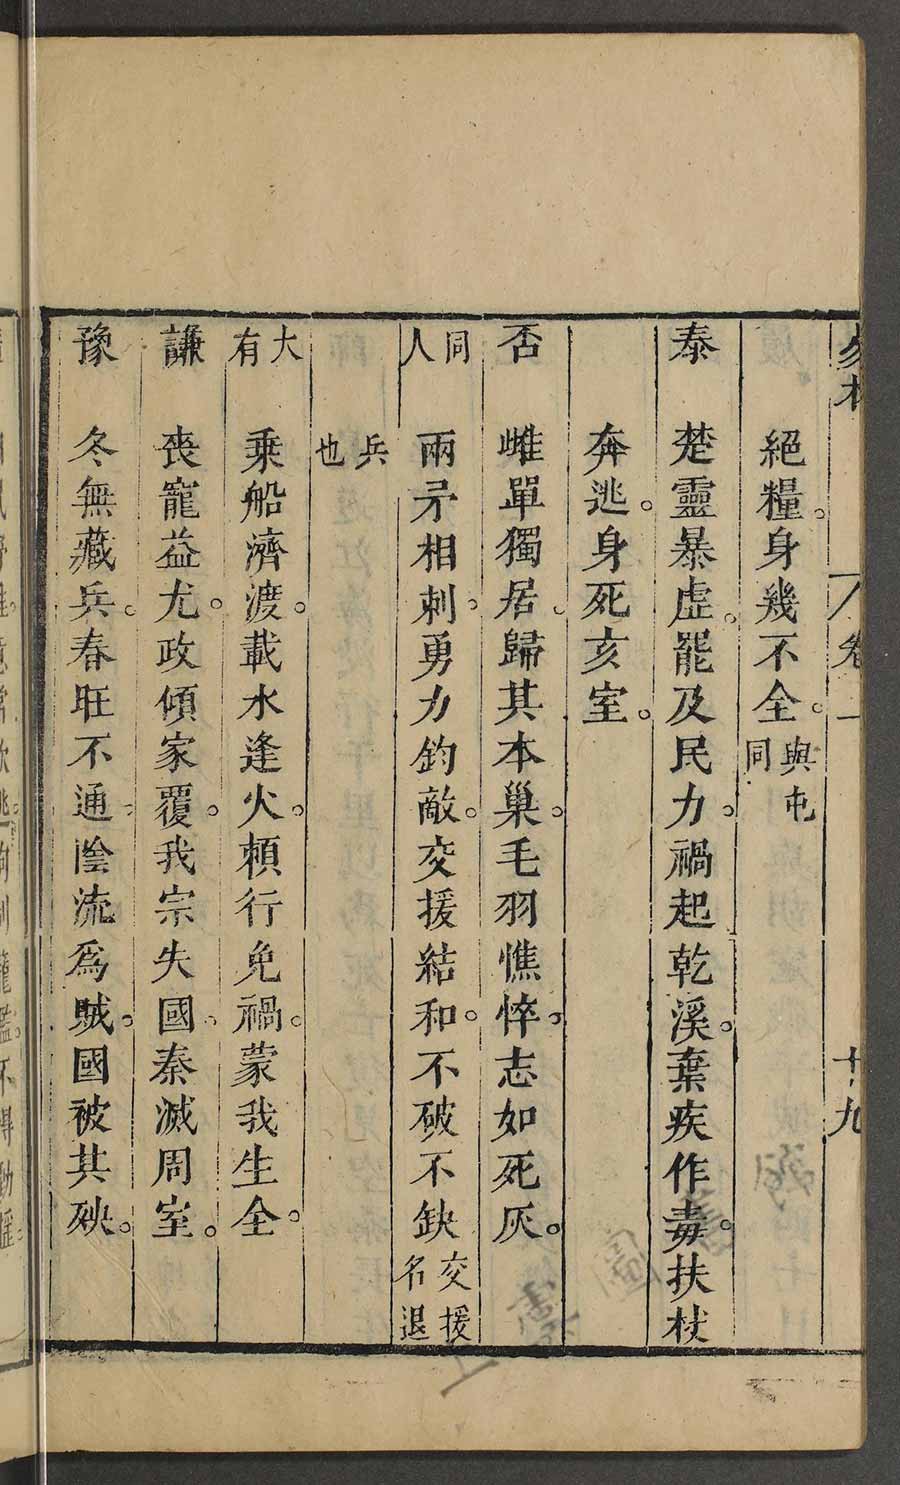 易林 卷二 十九
絕糧。身幾不全。與屯同
泰 楚靈暴虛。罷及民力。禍起乾溪。棄疾作毒。扶杖
奔逃。身死亥室。
否 雌單獨居。歸其本巢。毛羽憔悴。志如死灰。
同人 兩矛相刺。勇力鈞敵。交援結和。不破不缺 交援名退
兵也
大有 乘船濟渡。載水逢火。賴行免禍。蒙我生全。
謙 喪寵益尤。政傾家覆。我宗失國。秦滅周室。
豫 冬無藏兵。春旺不通。陰流爲賊。國被其殃。